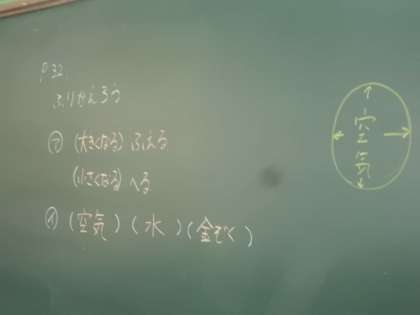 P.32
ふりかえろう
㋐ (大きくなる) ふえる
(小さくなる) へる
㋑ (空気) (水) (金ぞく)
空気